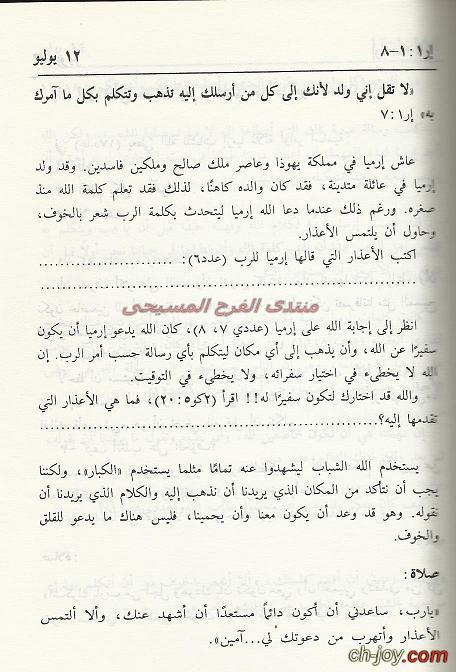 إر١:١-٨
١٢ يوليو
«لا تقل إني ولد لأنك إلى كل من أرسلك إليه تذهب وتتكلم بكل ما آمرك
به» إر٧:١
عاش إرميا في مملكة يهوذا وعاصر ملك صالح وملكين فاسدين. وقد ولد
إرميا في عائلة متدينة، فقد كان والده كاهنًا، لذلك فقد تعلم كلمة الله منذ
صغره. ورغم ذلك عندما دعا الله إرميا ليتحدث بكلمة الرب شعر بالخوف،
وحاول أن يلتمس الأعذار.
اكتب الأعذار التي قالها إرميا للرب (عدد٦): ......................
......................................................
منتدى الفرح المسيحى
انظر إلى إجابة الله على إرميا (عددي ٧، ٨)، كان الله يدعو إرميا أن يكون
سفيرًا عن الله، وأن يذهب إلى أي مكان ليتكلم بأي رسالة حسب أمر الرب. إن
الله لا يخطىء في اختيار سفرائه، ولا يخطىء في التوقيت.
والله قد اختارك لتكون سفيرًا له!! اقرأ (٢كو٢٠:٥)، فما هي الأعذار التي
تقدمها إليه؟......................................................
يستخدم الله الشباب ليشهدوا عنه تمامًا مثلما يستخدم «الكبار»، ولكننا
يجب أن نتأكد من المكان الذي يريدنا أن نذهب إليه والكلام الذي يريدنا أن
نقوله. وهو قد وعد أن يكون معنا وأن يحمينا، فليس هناك ما يدعو للقلق
والخوف.
صلاة:
«يارب، ساعدني أن أكون دائمًا مستعدًا أن أشهد عنك، وألا ألتمس
الأعذار وأتهرب من دعوتك لي...آمين».
ch-joy.com